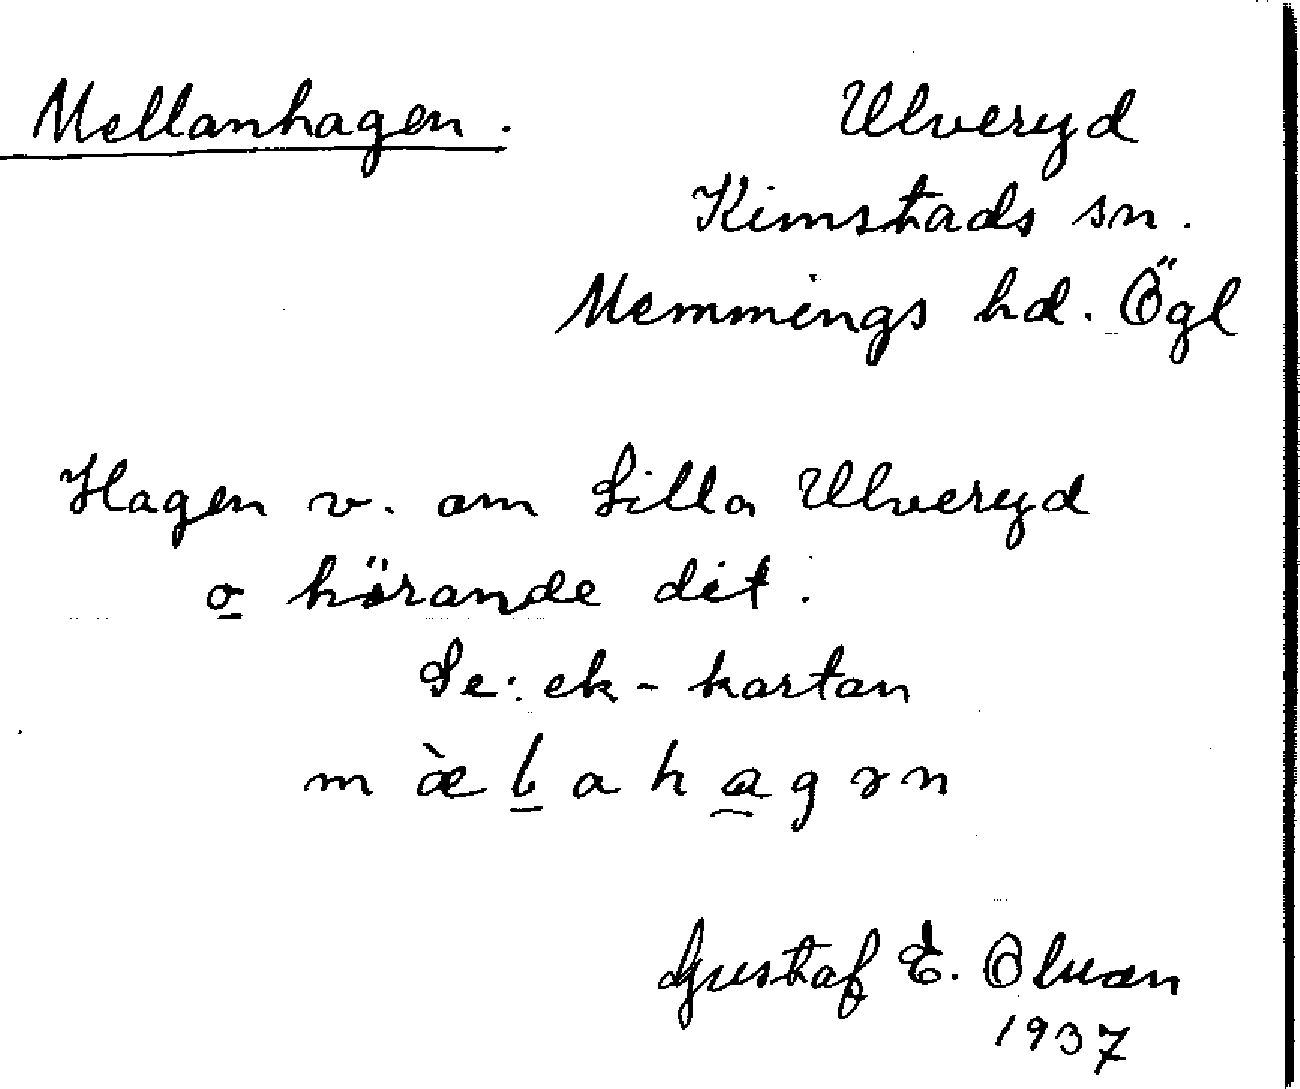 Mellanhagen.
Ulveryd
Kimstads sn.
Memmings hd. Ögl
Hagen v. om Lilla Ulveryd
o hörande dit.
Se: ek-kartan
m æ̀ l̲ a h a̲ g ə n
Gustaf E.
1937